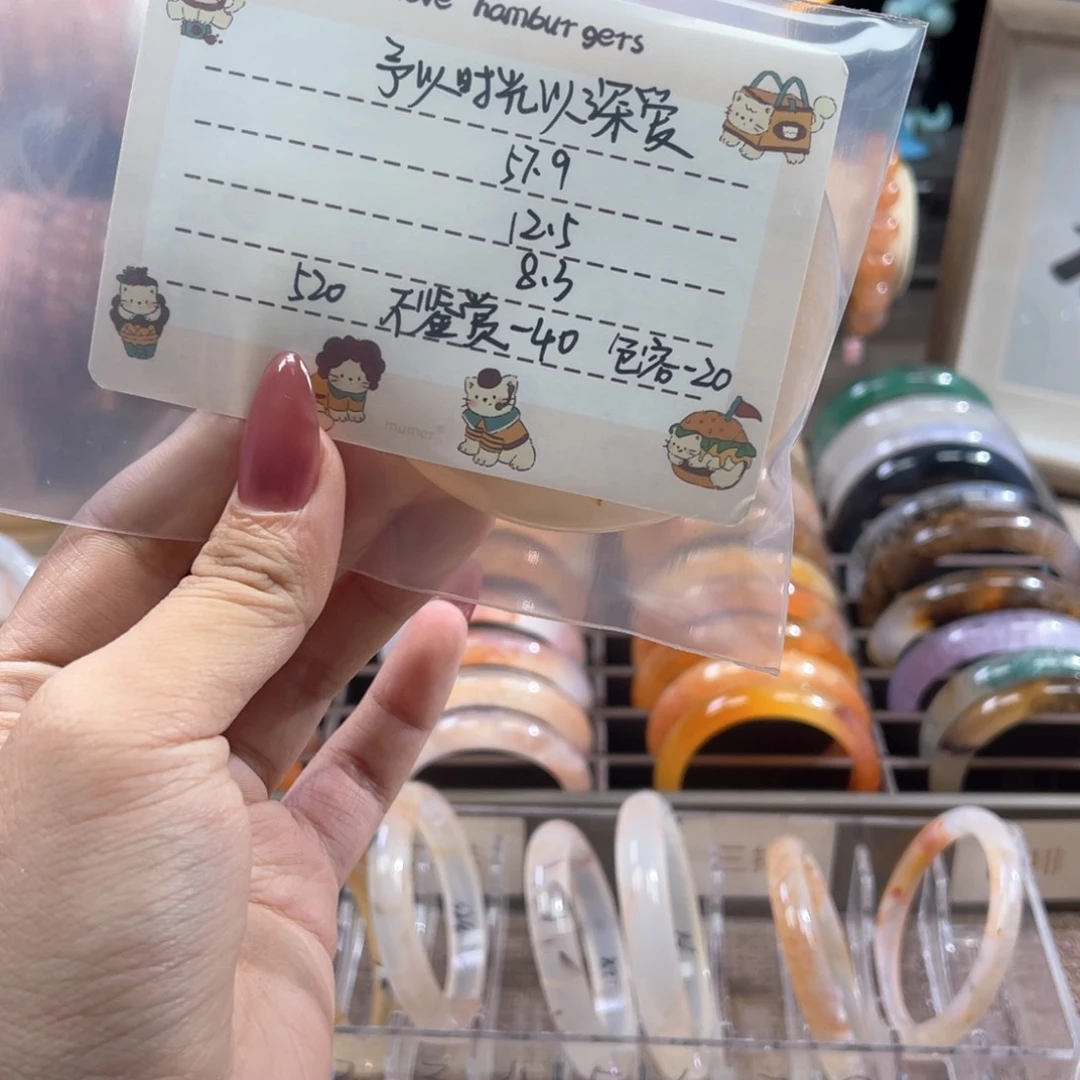 hamburgers
予以时光以深爱
57.9
12.5
8.5
520 不鉴赏-40 包容-20
mumer®
三排
排